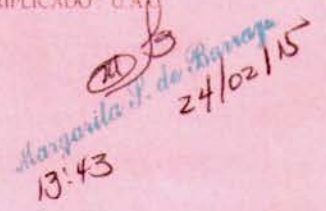 TRIPLICADO U.A.C
Margarita P. de Barraza
24/02/15
13:43